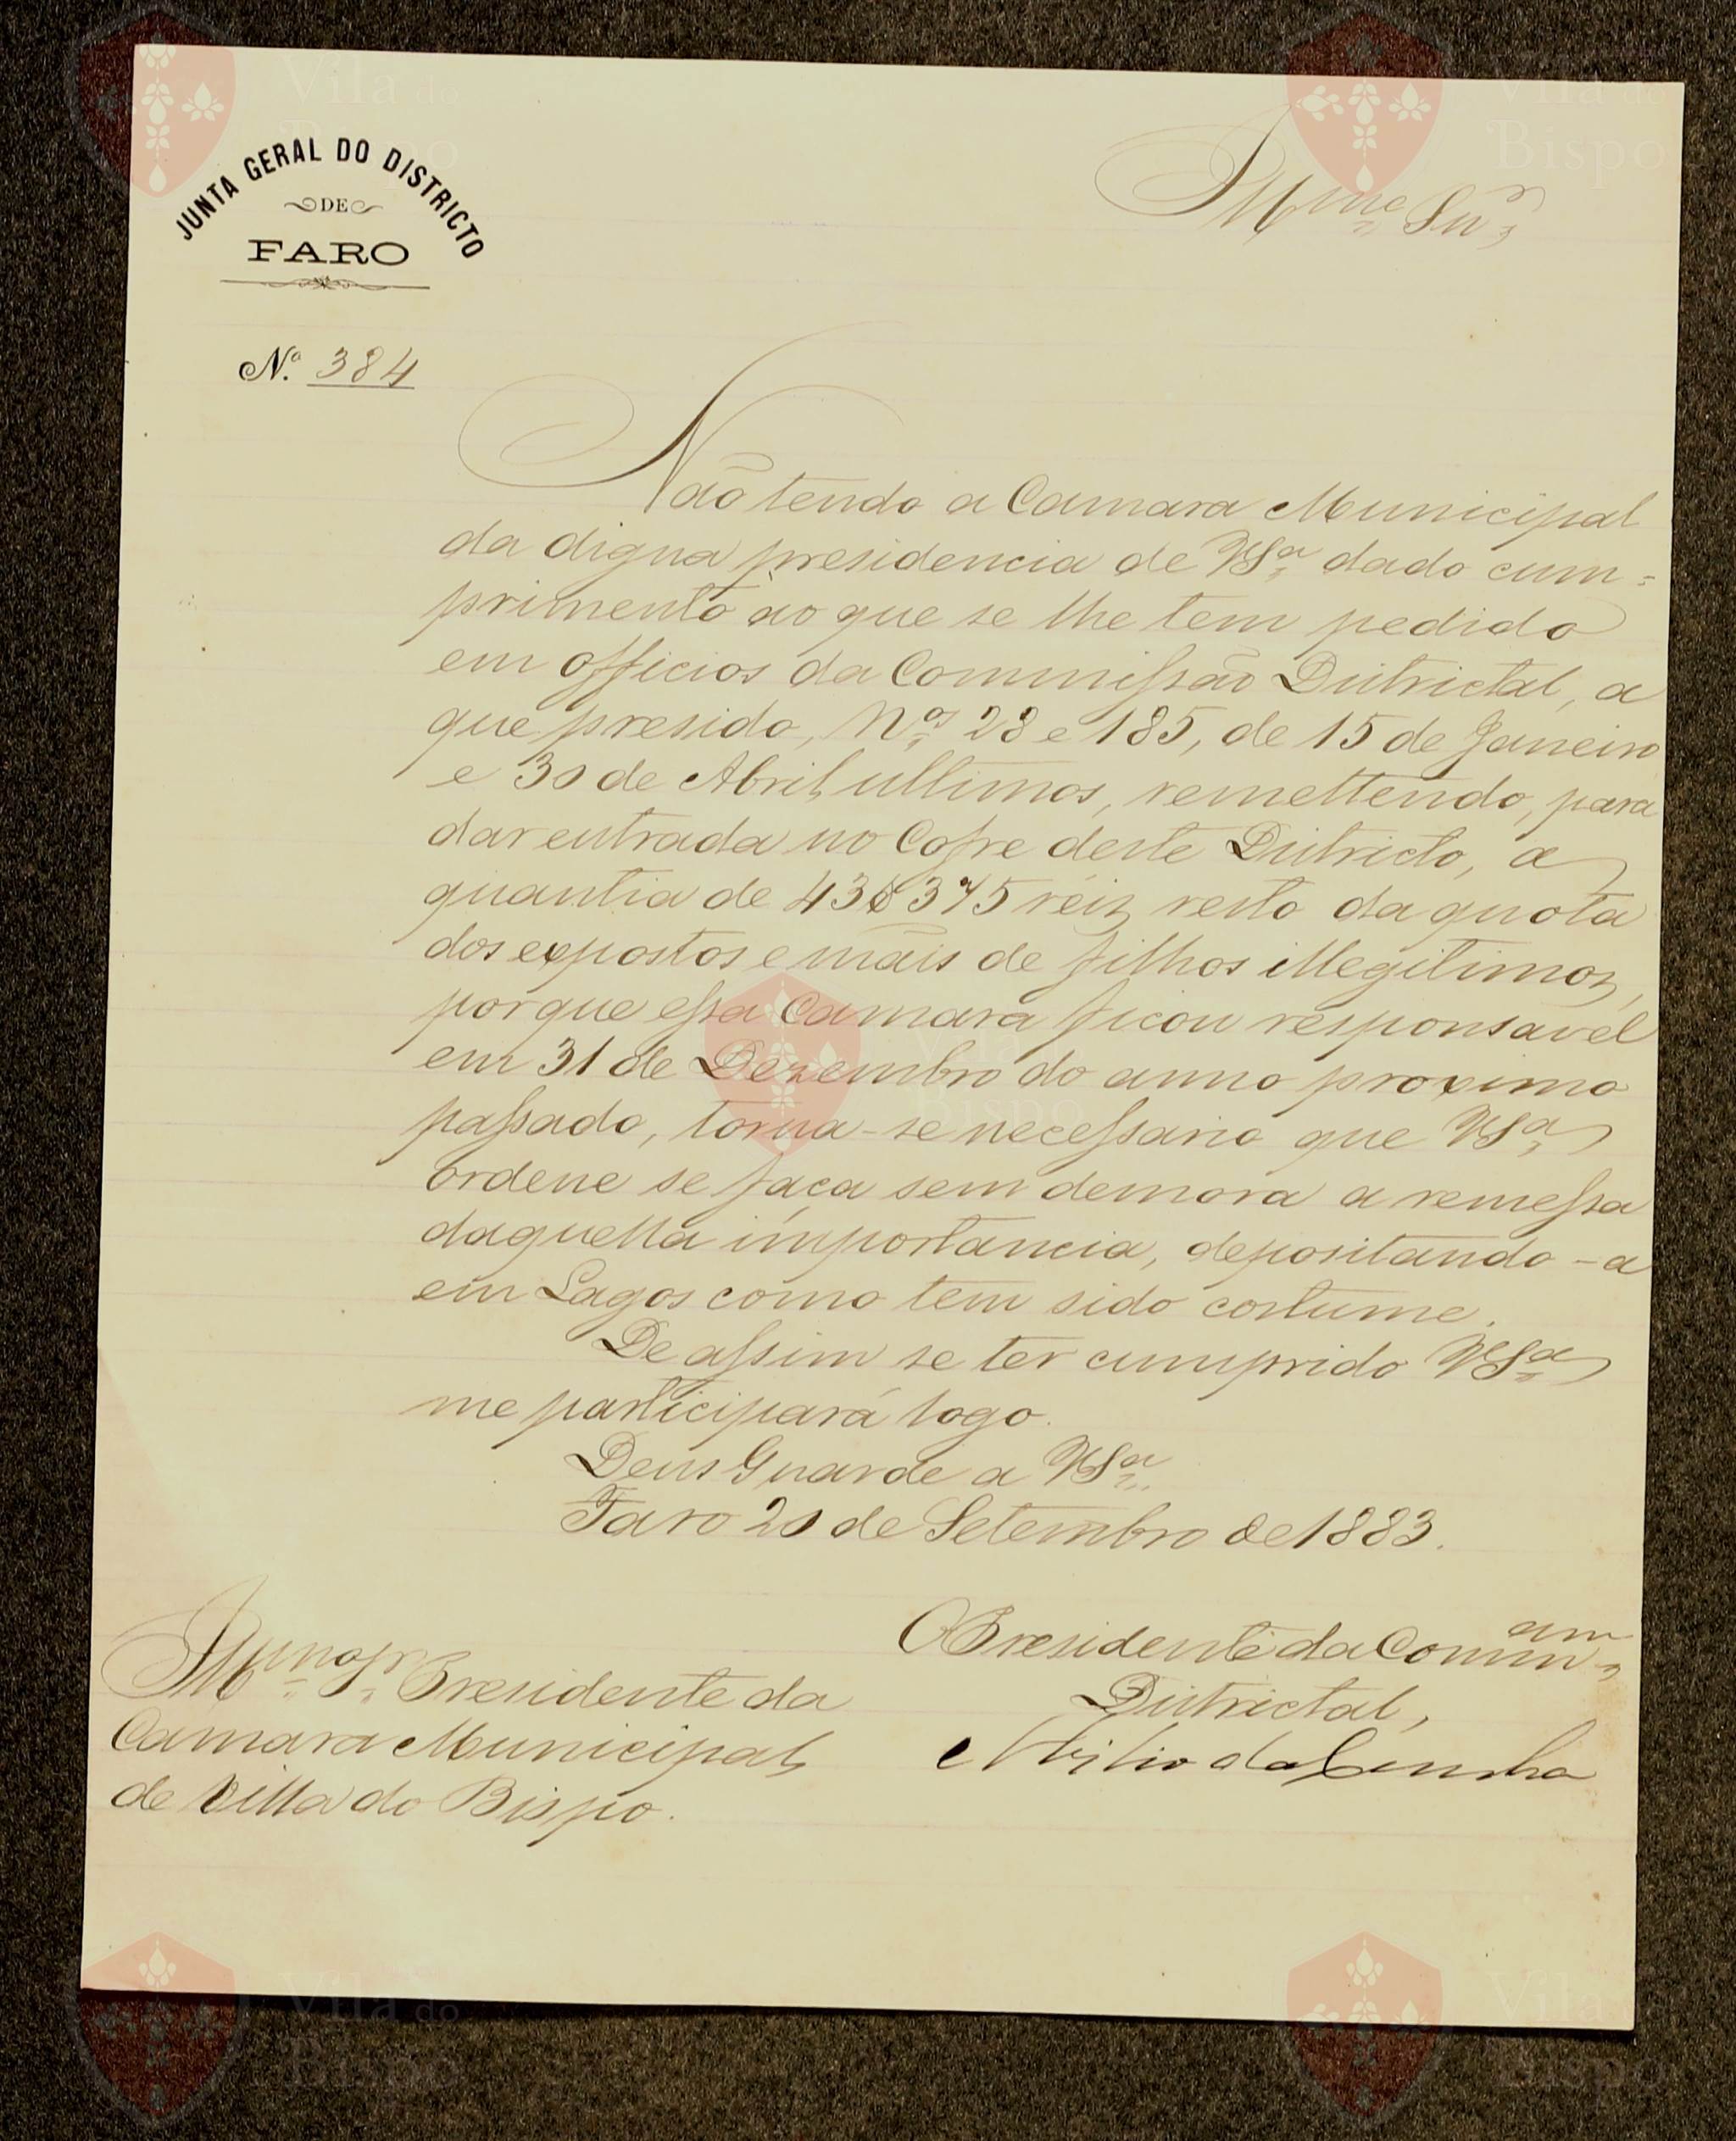 JUNTA GERAL DO DISTRICTO
DE
FARO
Nº 384
Illmo Snr
Não tendo a Camara Municipal
da digna presidencia de VSª dado cum=
primento ao que se lhe tem pedido
em officios da Commissão Districtal, a
que presido, Nos 28 e 185, de 15 de Janeiro
e 30 de Abril ultimos, remettendo, para
dar entrada no Cofre deste Districto, a
quantia de 43$375 réis, resto da quota
dos expostos e mãis de filhos illegitimos,
porque essa Camara ficou responsavel
em 31 de Dezembro do anno proximo
passado, torna-se necessario que VSª
ordene se faça sem demora a remessa
daquella importancia, depositando-a
em Lagos como tem sido costume.
De assim se ter cumprido VSª
me participará logo.
Deus Guarde a VSª
Faro 20 de Setembro de 1883.
O Presidente da Commam
Districtal,
Abilio da Cunha
Illmo Sr Presidente da
Camara Municipal
de Villa do Bispo.
Vila do
Bispo
Vila do
Bispo
Vila do
Bispo
Vila do
Bispo
Vila do
Bispo